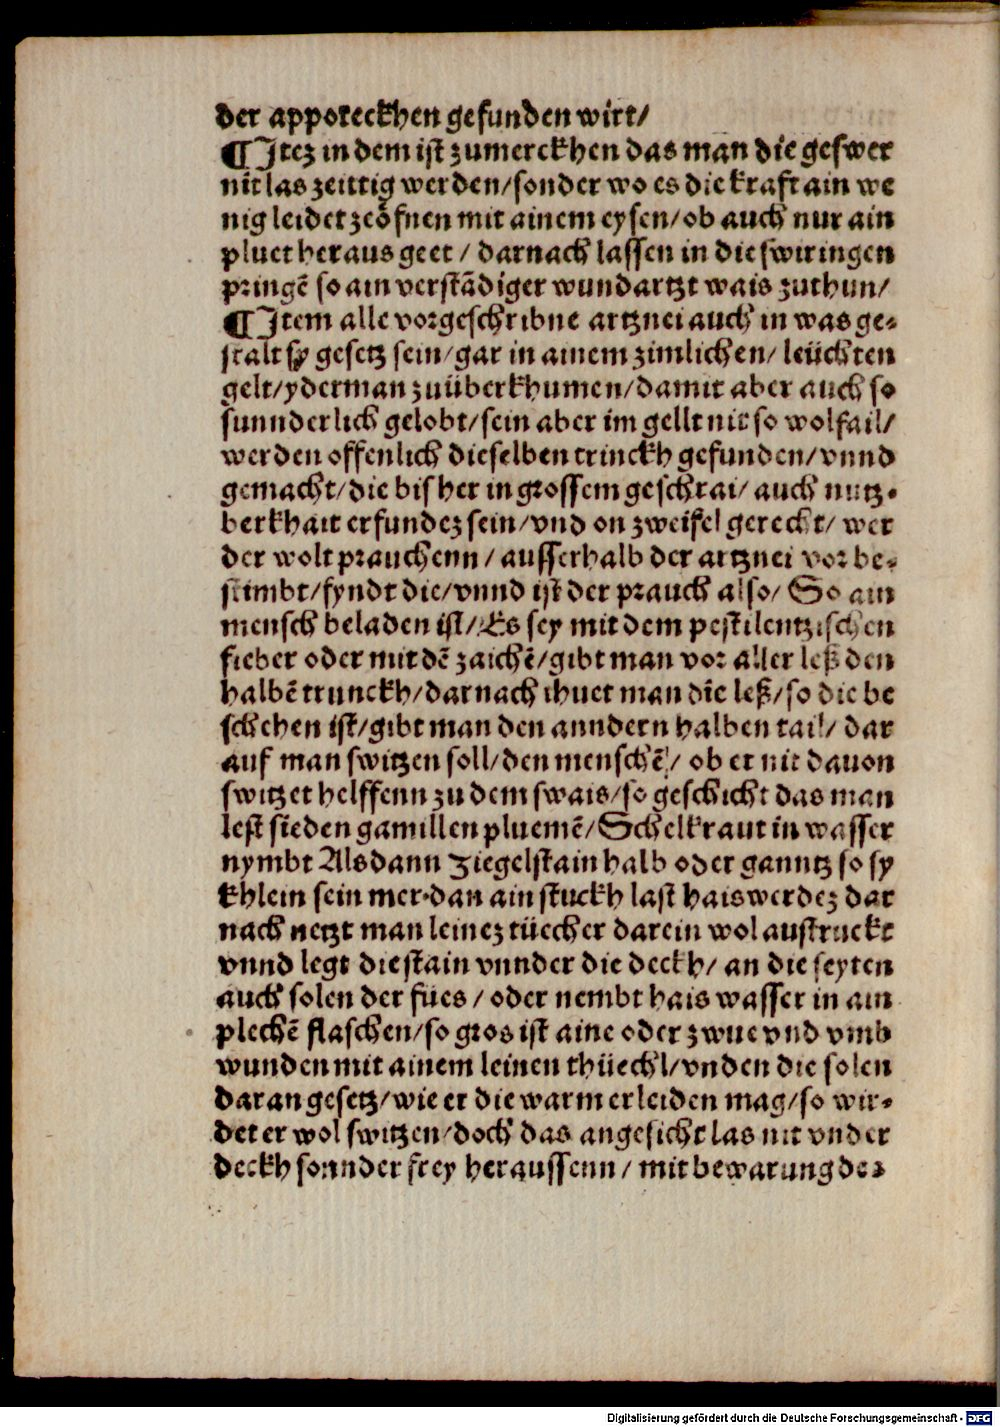 der appoteckhen gefunden wirt/
¶Iteʒ in dem ist zumerckhen das man die geswer
nit las zeittig werden/sonder wo es die kraft ain we
nig leidet zeöfnen mit ainem eysen/ob auch nur ain
pluet heraus geet / darnach lassen in die swiringen
pringē so ain verstādiger wundartzt wais zuthun/
¶Item alle vorgeschribne artznei auch in was ge⸗
stalt sy gesetz sein/gar in ainem zimlichen/ leüchten
gelt/yderman zuüberkhumen/damit aber auch so
sunnderlich gelobt/sein aber im gellt nit so wolfail/
werden offenlich dieselben trinckh gefunden/vnnd
gemacht/die bisher in grossem geschrai/ auch nutz⸗
berkhait erfundeʒ sein/vnd on zweifel gerecht/ wer
der wolt prauchenn / ausserhalb der artznei vor be⸗
stimbt/fyndt die/vnnd ist der prauch also/ So ain
mensch beladen ist/Es sey mit dem pestilentzischen
fieber oder mit dē zaichē/gibt man vor aller leß den
halbē trunckh/darnach thuet man die leß/so die be
schehen ist/gibt man den anndern halben tail/ dar
auf man switzen soll/den menschē/ ob er nit dauon
switzet helffenn zu dem swais/so geschicht das man
lest sieden gamillen pluemē/Schelkraut in wasser
nymbt Alsdann Ziegelstain halb oder ganntz so sy
khlein sein mer⸗dan ain stuckh last hais werdeʒ dar
nach netzt man leineʒ tüecher darein wol austruckt
vnnd legt die stain vnnder die deckh/ an die seyten
auch solen der fües / oder nembt hais wasser in ain
plechē flaschen/so gros ist aine oder zwue vnd vmb
wunden mit ainem leinen thüechl/vnden die solen
daran gesetz/wie er die warm erleiden mag/so wir⸗
det er wol switzen/doch das angesicht las nit vnder
deckh sonnder frey heraussenn / mit bewarung der
Digitalisierung gefördert durch die Deutsche Forschungsgemeinschaft - DFG